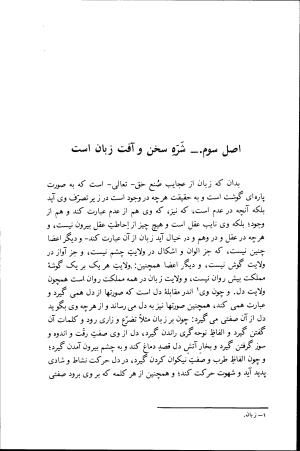 اصل سوم. ــ شَرَهِ سخن و آفت زبان است
بدان که زبان از عجایب صُنع حق-تعالی- است که به صورت
پاره‌ای گوشت است و به حقیقت هرچه در وجود است در زیر تصرّف وی آید
بلکه آنچه در عدم است، که نیز، که وی هم از عدم عبارت کند و هم از
وجود؛ بلکه وی نایب عقل است و هیچ چیز از اِحاطتِ عقل بیرون نیست، و
هرچه در عقل و در وهم و در خیال آید زبان از آن عبارت کند- و دیگر اعضا
چنین نیست، که جز الوان و اشکال در ولایتِ چشم نیست، و جز آواز در
ولایت گوش نیست، و دیگر اعضا همچنین: ولایتِ هر یک بر یک گوشهٔ
مملکت بیش روان نیست، و ولایت زبان در همه مملکت روان است همچون
ولایت دل. و چون وی۱ اندر مقابلهٔ دل است که صورتها از دل همی گیرد و
عبارت همی کند، همچنین صورتها نیز به دل می‌رساند و از هرچه وی بگوید
دل از آن صفتی می گیرد: چون بر زبان مثلاً تضرّع و زاری رود و کلمات آن
گفتن گیرد و الفاظِ نوحه‌گری راندن گیرد، دل از وی صفتِ رقّت و اندوه و
سوز گرفتن گیرد و بخار آتش دل قصد دماغ کند و به چشم بیرون آمدن گیرد؛
و چون الفاظ طرب و صفتِ نیکوان کردن گیرد، در دل حرکت نشاط و شادی
پدید آید و شهوت حرکت کند؛ و همچنین از هر کلمه که بر وی برود صفتی
۱ــ زبان.